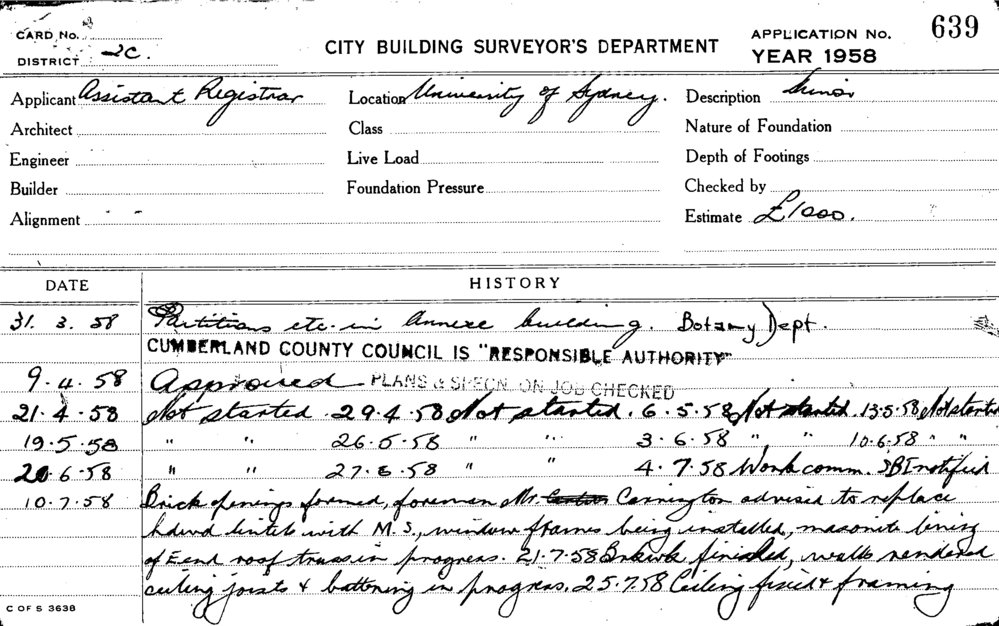 CARD No.
DISTRICT 2C.
CITY BUILDING SURVEYOR'S DEPARTMENT
APPLICATION No. 639
YEAR 1958
Applicant Assistant Registrar
Location University of Sydney.
Description Minor
Architect
Class
Nature of Foundation
Engineer
Live Load
Depth of Footings
Builder
Foundation Pressure
Checked by
Alignment
Estimate £1000.
DATE
HISTORY
31. 3. 58 Partitions etc. in Annexe building. Botany Dept.
CUMBERLAND COUNTY COUNCIL IS "RESPONSIBLE AUTHORITY"
9. 4. 58 Approved PLANS & SPECN. ON JOB CHECKED
21. 4. 58 Not started. 29.4.58 Not started. 6.5.58 Not started. 13.5.58 Not started
19.5.58 " " 26.5.58 " " 3.6.58 " " 10.6.58 " "
20.6.58 " " 27.6.58 " " 4.7.58 Work comm. notified
10.7.58 Brick openings formed, foreman Mr. Carrington advised to replace
hdwd lintels with M.S., window frames being installed, masonite lining
of E end roof truss in progress. 21.7.58 Brkwk finished, walls rendered
ceiling joists & battening in progress. 25.7.58 Ceiling fixed & framing
C OF S 3638